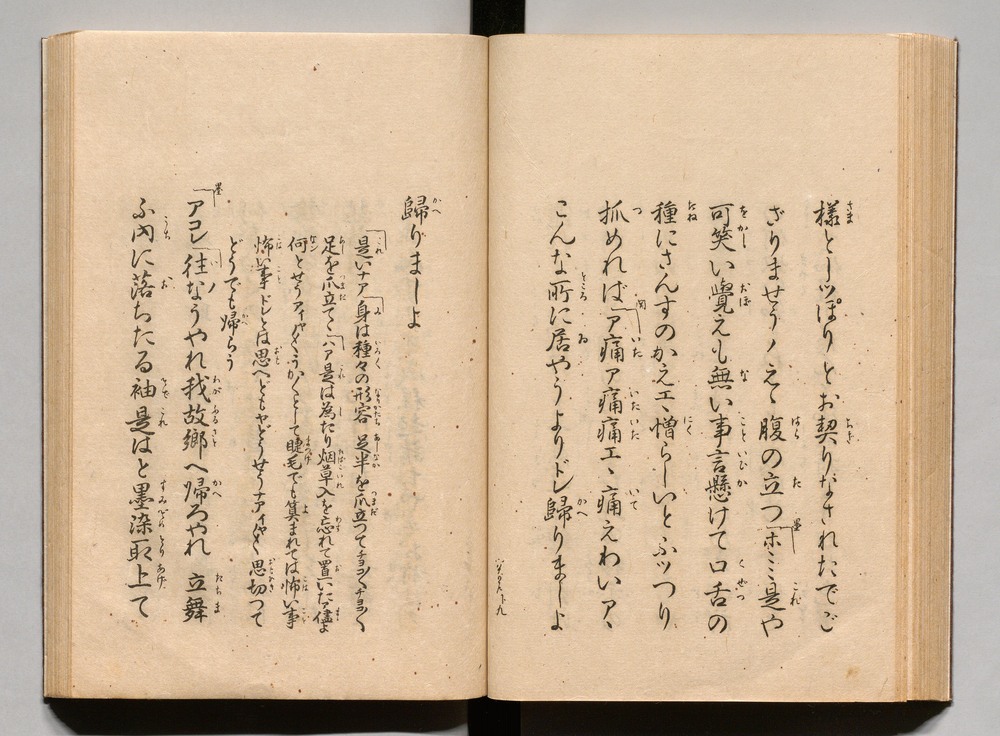 様としッぽりとお契りなされたでご
ざりませうノえゝ腹の立つ「ホヽミ是や
可笑い覺えも無い事言懸けて口舌の
種にさんすのかえエヽ憎らしいとふッつり
抓めれば「ア痛ア痛痛エヽ痛えわいアヽ
こんな所に居やうよりドレ歸りましよ
歸りましよ
「是いナア「身は種々の形容 足半を爪立つてチヨコ〱チヨコ〱
足を爪立てゝ「ハア是は為たり烟草入を忘れて置いたア儘よ
何とせうアイヤどうかな〱として睫毛でも算まれては怖い事
怖い事ドレとは思へどもヤどうせうナアイヤ〱思切つて
どうでも帰らう
「アコレ「往なうやれ我故郷へ帰ろやれ 立舞
ふ内に落ちたる袖是はと墨染取上て